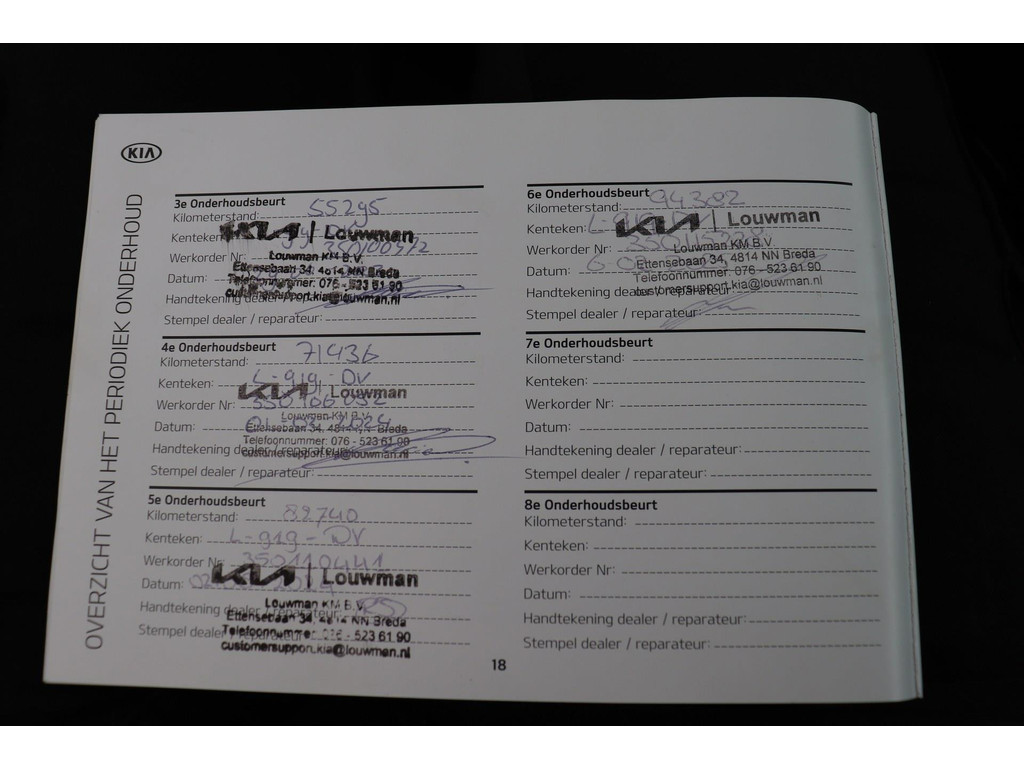 KIA
OVERZICHT VAN HET PERIODIEK ONDERHOUD
3e Onderhoudsbeurt
Kilometerstand: 55295
Kenteken:
Werkorder Nr: 350100572
Datum:
Handtekening dealer / reparateur:
Stempel dealer / reparateur:
KIA | Louwman
Louwman KM B.V.
Ettensebaan 34, 4814 NN Breda
Telefoonnummer: 076 - 523 61 90
customersupport.kia@louwman.nl
4e Onderhoudsbeurt
Kilometerstand: 71436
Kenteken: L-919-DV
Werkorder Nr: 350106052
Datum:
Handtekening dealer / reparateur:
Stempel dealer / reparateur:
KIA | Louwman
Louwman KM B.V.
Ettensebaan 34, 4814 NN Breda
Telefoonnummer: 076 - 523 61 90
customersupport.kia@louwman.nl
5e Onderhoudsbeurt
Kilometerstand: 82740
Kenteken: L-919-DV
Werkorder Nr: 350110441
Datum:
Handtekening dealer / reparateur:
Stempel dealer / reparateur:
KIA | Louwman
Louwman KM B.V.
Ettensebaan 34, 4814 NN Breda
Telefoonnummer: 076 - 523 61 90
customersupport.kia@louwman.nl
6e Onderhoudsbeurt
Kilometerstand: 94302
Kenteken:
Werkorder Nr:
Datum:
Handtekening dealer / reparateur:
Stempel dealer / reparateur:
KIA | Louwman
Louwman KM B.V.
Ettensebaan 34, 4814 NN Breda
Telefoonnummer: 076 - 523 61 90
customersupport.kia@louwman.nl
7e Onderhoudsbeurt
Kilometerstand:
Kenteken:
Werkorder Nr:
Datum:
Handtekening dealer / reparateur:
Stempel dealer / reparateur:
8e Onderhoudsbeurt
Kilometerstand:
Kenteken:
Werkorder Nr:
Datum:
Handtekening dealer / reparateur:
Stempel dealer / reparateur:
18